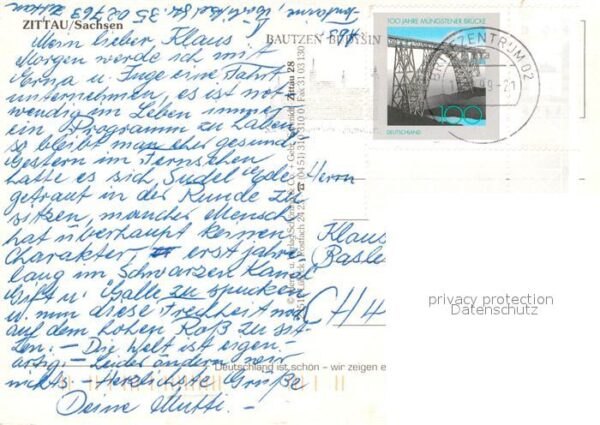 ZITTAU/Sachsen
Mein lieber Klaus!
Morgen werde ich mit
Erna u. Inge eine Fahrt
unternehmen, es ist not
wendig im Leben immer
ein Programm zu haben
so bleibt man eher gesund
Gestern im Fernsehen
hatte es sich, Sudel Ede
getraut in der Runde zu
sitzen, mancher Mensch
hat überhaupt keinen
Charakter, erst jahre
lang im Schwarzen Kanal
Gift u. Galle zu spucken
u. nun diese Frechheit noch
auf dem hohen Roß zu sit-
zen. – Die Welt ist eigen-
artig. – Leider ändern wir
nichts. – Herzlichste Grüße
Deine Mutti. –
02763 Zittau
BAUTZEN BUDYŠIN
100 JAHRE MÜNGSTENER BRÜCKE
100
DEUTSCHLAND
BRIEFZENTRUM 02
Zittau 28
Herrn
Klaus
Basle
CH 4
Deutschland ist schön – wir zeigen e
privacy protection
Datenschutz